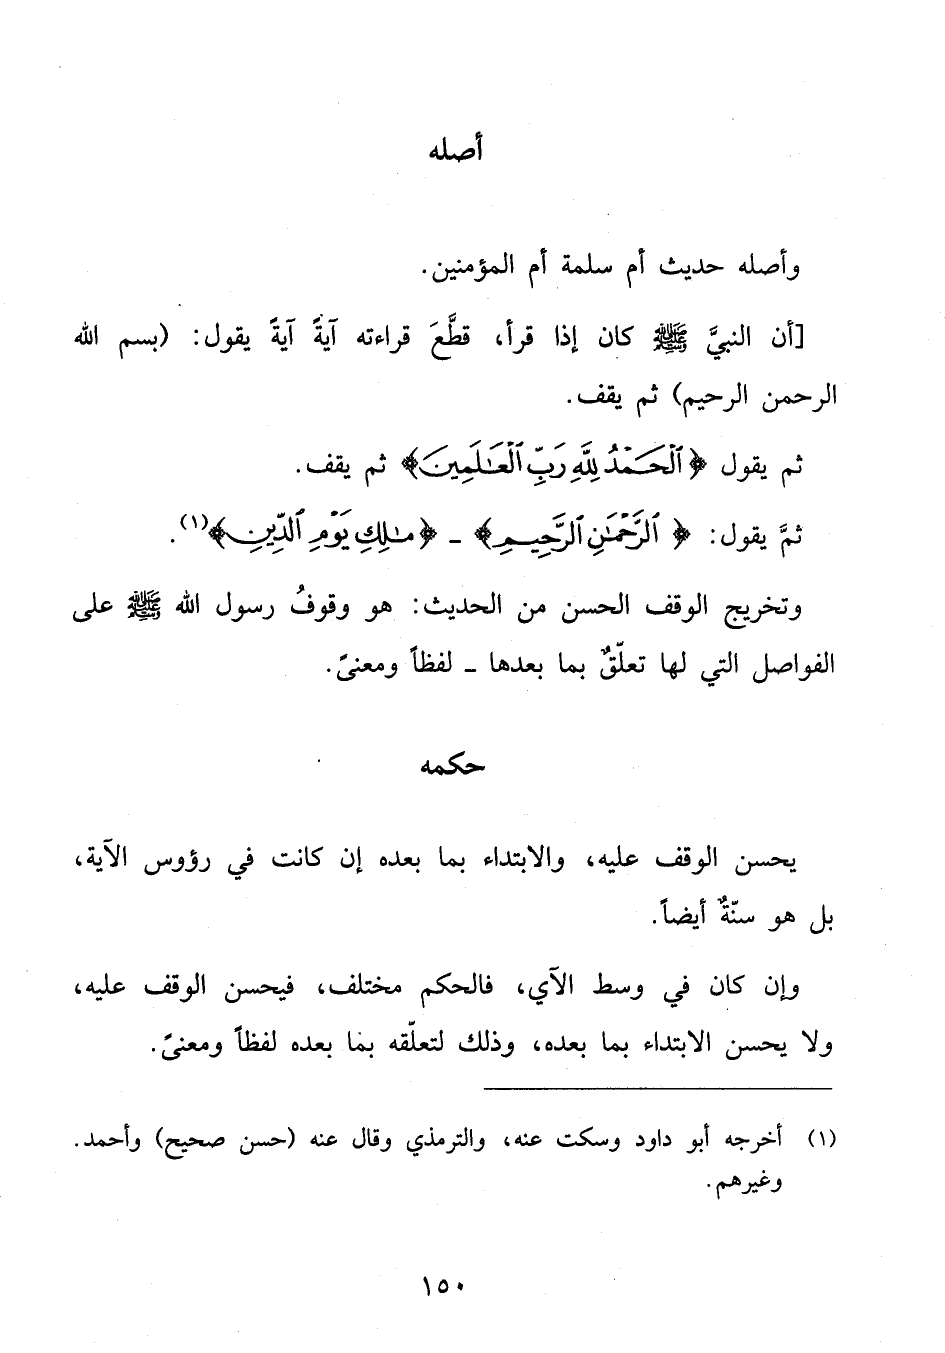 أصله
وأصله حديث أم سلمة أم المؤمنين.
[أن النبيَّ ﷺ كان إذا قرأ، قطَّعَ قراءته آيةً آيةً يقول: (بسم الله
الرحمن الرحيم) ثم يقف.
ثم يقول ﴿ٱلْحَمْدُ لِلَّهِ رَبِّ ٱلْعَٰلَمِينَ﴾ ثم يقف.
ثمَّ يقول: ﴿ٱلرَّحْمَٰنِ ٱلرَّحِيمِ﴾ ـ ﴿مَٰلِكِ يَوْمِ ٱلدِّينِ﴾(١).
وتخريج الوقف الحسن من الحديث: هو وقوفُ رسول الله ﷺ على
الفواصل التي لها تعلّقٌ بما بعدها ـ لفظاً ومعنىً.
حكمه
يحسن الوقف عليه، والابتداء بما بعده إن كانت في رؤوس الآية،
بل هو سنّةٌ أيضاً.
وإن كان في وسط الآي، فالحكم مختلف، فيحسن الوقف عليه،
ولا يحسن الابتداء بما بعده، وذلك لتعلّقه بما بعده لفظاً ومعنىً.
(١) أخرجه أبو داود وسكت عنه، والترمذي وقال عنه (حسن صحيح) وأحمد.
وغيرهم.
١٥٠